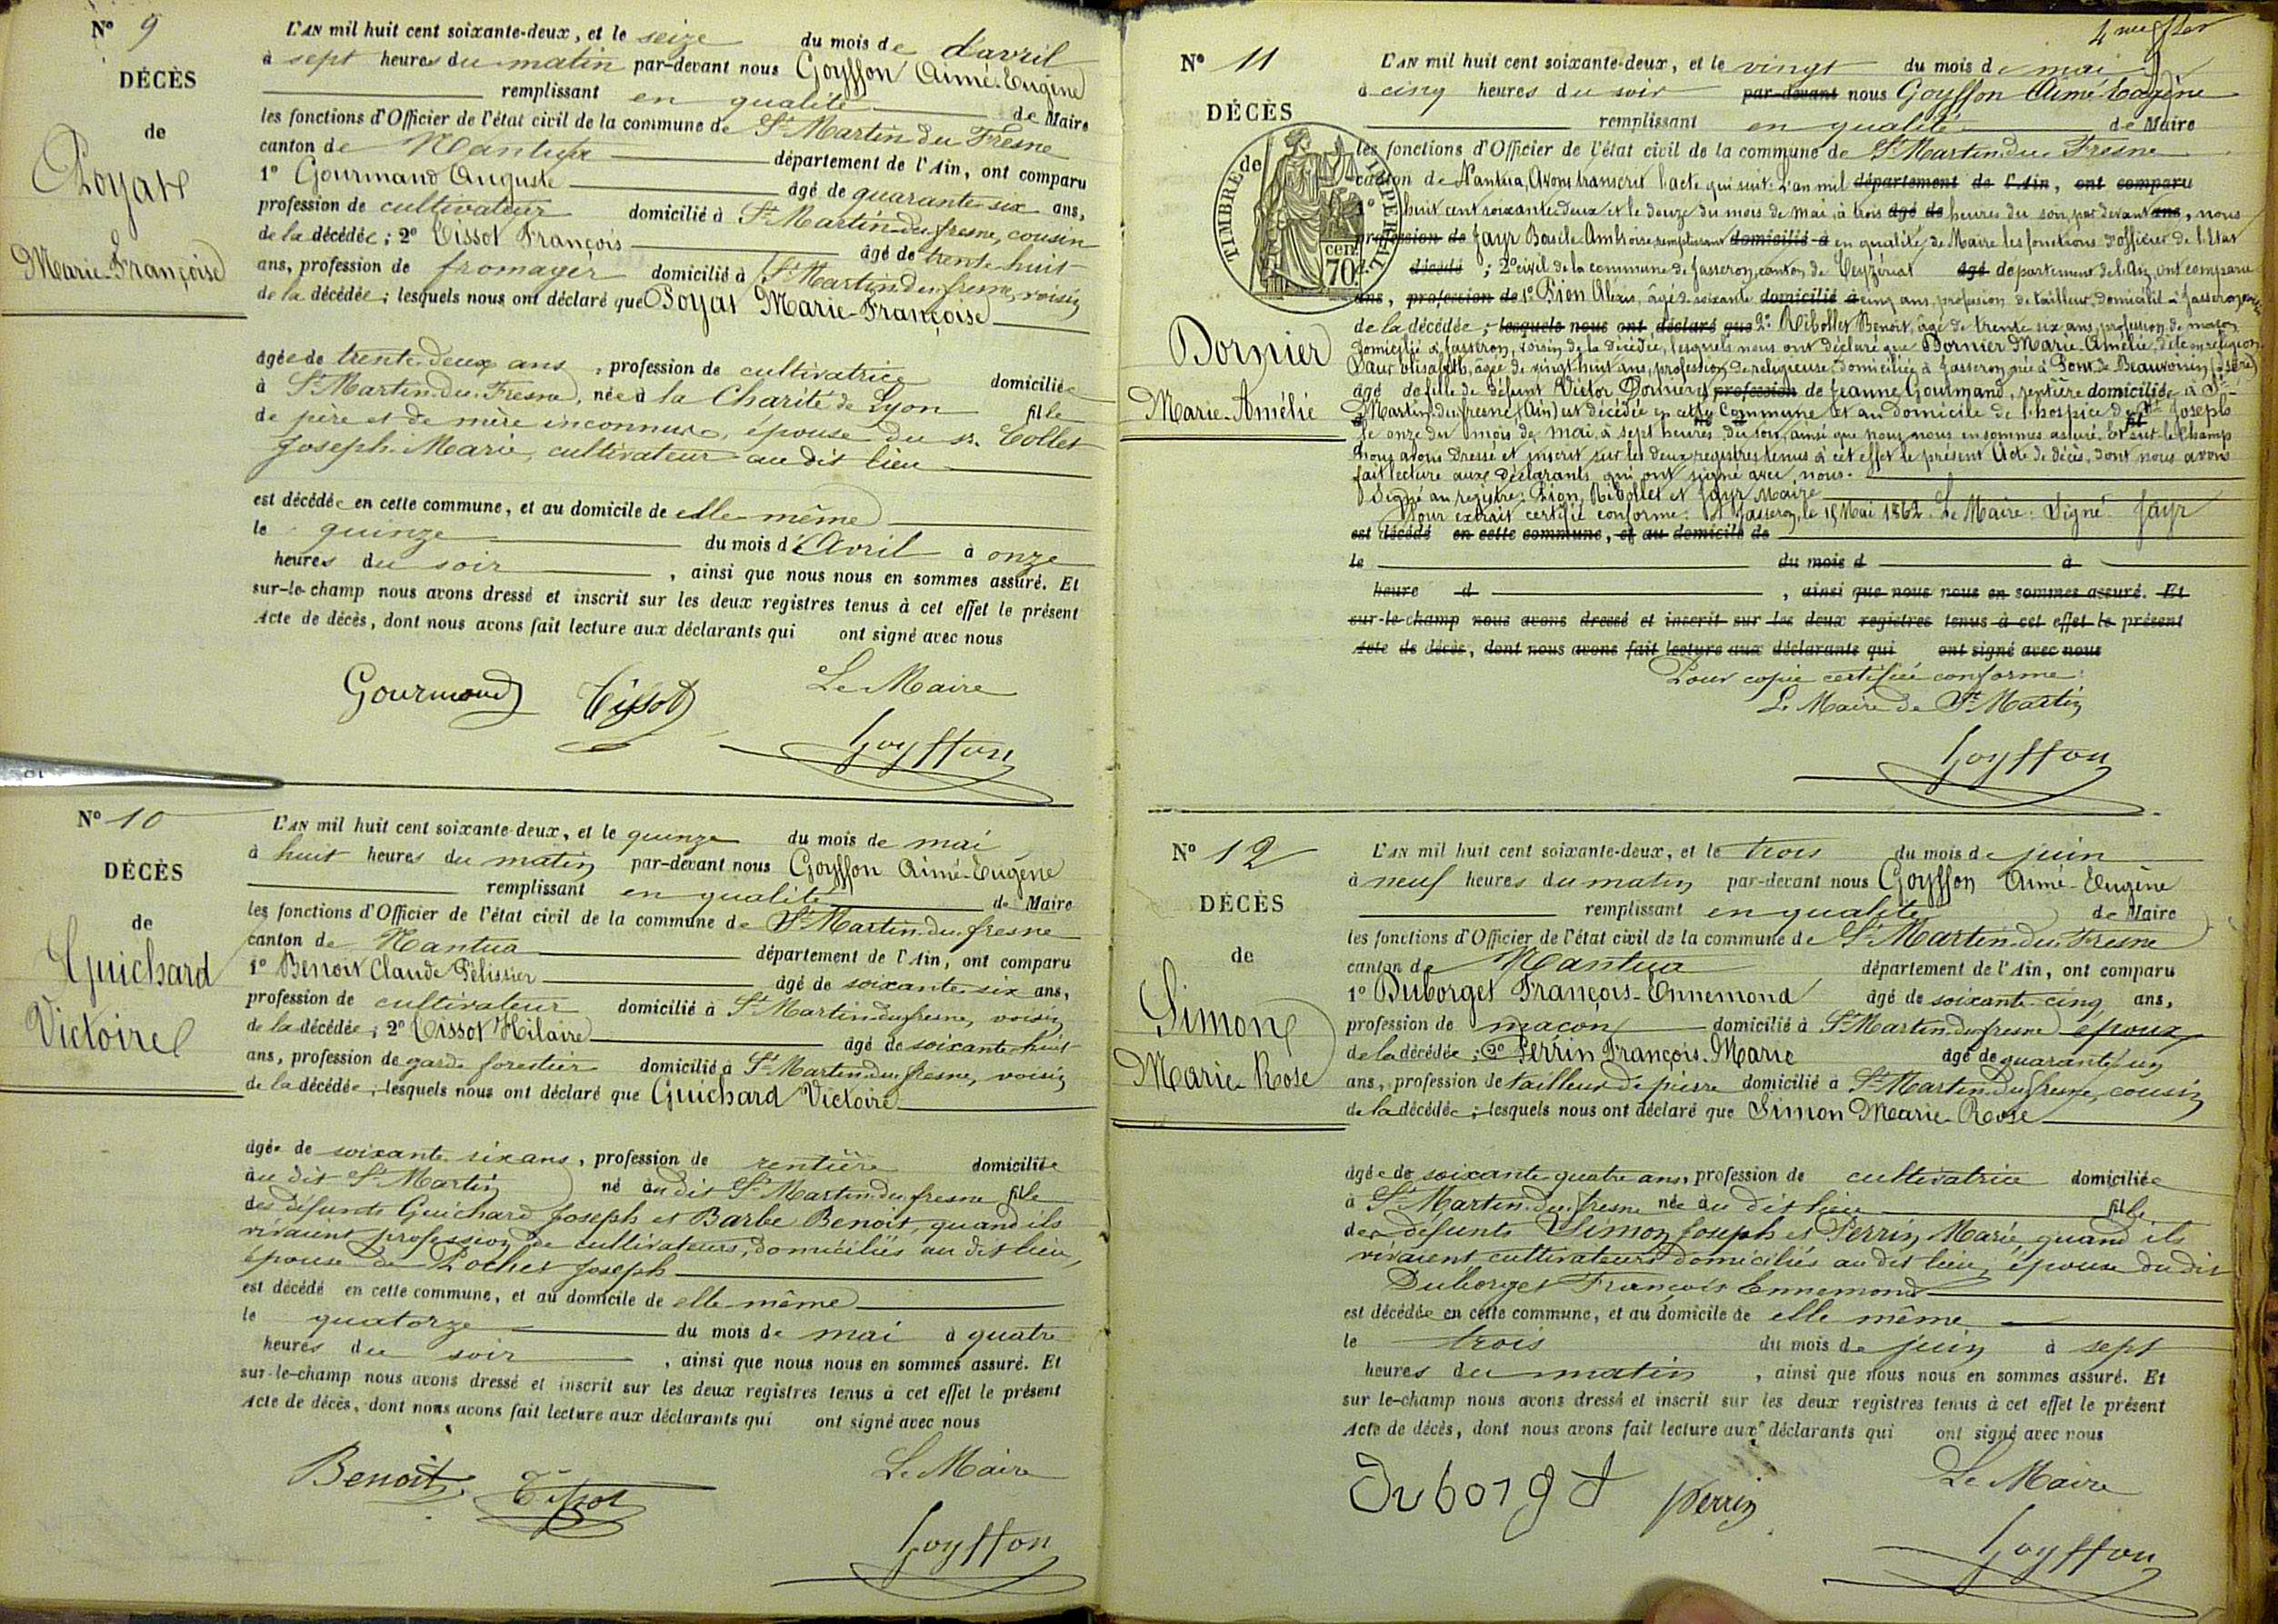 N° 9
DÉCÈS
de
Poyat
Marie-Françoise
L'AN mil huit cent soixante-deux, et le seize du mois de d'avril
à sept heures du matin par-devant nous Goyffon Aimé-Eugène
remplissant en qualité de Maire
les fonctions d'Officier de l'état civil de la commune de St Martin-du-Fresne
canton de Nantua département de l'Ain, ont comparu
1° Gourmand Auguste âgé de quarante-six ans,
profession de cultivateur domicilié à St Martin-du-fresne, cousin
de la décédée ; 2° Tissot François âgé de trente-huit
ans, profession de fromager domicilié à St Martin-du-fresne, voisin
de la décédée ; lesquels nous ont déclaré que Poyat Marie-Françoise
âgée de trente-deux ans, profession de cultivatrice domiciliée
à St Martin-du-Fresne, née à la Charité de Lyon fille
de père et de mère inconnus, épouse du sr. Collet
Joseph-Marie, cultivateur au dit lieu
est décédée en cette commune, et au domicile de elle-même
le quinze du mois d'Avril à onze
heures du soir, ainsi que nous nous en sommes assuré. Et
sur-le-champ nous avons dressé et inscrit sur les deux registres tenus à cet effet le présent
Acte de décès, dont nous avons fait lecture aux déclarants qui ont signé avec nous
Le Maire
Gourmand Tissot
Goyffon
N° 10
DÉCÈS
de
Guichard
Victoire
L'AN mil huit cent soixante-deux, et le quinze du mois de mai
à huit heures du matin par-devant nous Goyffon Aimé-Eugène
remplissant en qualité de Maire
les fonctions d'Officier de l'état civil de la commune de St Martin-du-fresne
canton de Nantua département de l'Ain, ont comparu
1° Benoit Claude Pélissier âgé de soixante-six ans,
profession de cultivateur domicilié à St Martin-du-fresne, voisin
de la décédée ; 2° Tissot Hilaire âgé de soixante-huit
ans, profession de garde forestier domicilié à St Martin-du-fresne, voisin
de la décédée ; lesquels nous ont déclaré que Guichard Victoire
âgée de soixante-six ans, profession de rentière domiciliée
au dit St Martin né au dit St Martin-du-fresne fille
des défunts Guichard Joseph et Barbe Benoit, quand ils
vivaient profession de cultivateurs, domiciliés au dit lieu,
épouse de Pochet Joseph
est décédé en cette commune, et au domicile de elle même
le quatorze du mois de mai à quatre
heures du soir, ainsi que nous nous en sommes assuré. Et
sur-le-champ nous avons dressé et inscrit sur les deux registres tenus à cet effet le présent
Acte de décès, dont nous avons fait lecture aux déclarants qui ont signé avec nous
Le Maire
Benoit Tissot
Goyffon
N° 11
DÉCÈS
TIMBRE IMPÉRIAL
70 cen
Dornier
Marie-Amélie
L'AN mil huit cent soixante-deux, et le vingt du mois de mai
à cinq heures du soir par-devant nous Goyffon Aimé Eugène
remplissant en qualité de Maire
les fonctions d'Officier de l'état civil de la commune de St Martin-du-Fresne
canton de Nantua, Avons transcrit l'acte qui suit : L'an mil département de l'Ain, ont comparu
1° huit cent soixante-deux et le douze du mois de mai, à trois âgé de heures du soir, par devant ans, nous
profession de Jayr Basile-Ambroise, remplissant domicilié à en qualité de Maire les fonctions d'officier de l'état
décédé ; 2° civil de la commune de Jasseron, canton de Ceyzériat âgé département de l'Ain, ont comparu
ans, profession de 1° Pion Alexis, âgé de soixante domicilié à cinq ans, profession de tailleur, domicilié à Jasseron
de la décédée ; lesquels nous ont déclaré que 2° Ribollet Benoit, âgé de trente-six ans, profession de maçon
domicilié à Jasseron, voisin de la décédée, lesquels nous ont déclaré que Dornier Marie-Amélie, dite en religion
Sœur Elisabeth, âgée de vingt-huit ans, profession de religieuse, domiciliée à Jasseron, née à Pont-de-Beauvoisin (Isère)
âgé de fille de défunt Victor Dornier et profession de Jeanne Gourmand, rentière domiciliée à St-
Martin-du-fresne (Ain) est décédée en cette commune et au domicile de l'hospice de St Joseph
le onze du mois de mai, à sept heures du soir, ainsi que nous nous en sommes assuré. Et sur-le-champ
nous avons dressé et inscrit sur les deux registres tenus à cet effet le présent Acte de décès, dont nous avons
fait lecture aux déclarants qui ont signé avec nous.
Signé au registre : Pion, Ribollet et Jayr Maire
Pour extrait certifié conforme : Jasseron, le 15 Mai 1862. Le Maire : Signé Jayr
est décédé en cette commune, et au domicile de
le du mois d à
heure d , ainsi que nous nous en sommes assuré. Et
sur-le-champ nous avons dressé et inscrit sur les deux registres tenus à cet effet le présent
Acte de décès, dont nous avons fait lecture aux déclarants qui ont signé avec nous
Pour copie certifiée conforme :
Le Maire de St Martin
Goyffon
N° 12
DÉCÈS
de
Simon
Marie-Rose
L'AN mil huit cent soixante-deux, et le trois du mois de juin
à neuf heures du matin par-devant nous Goyffon Aimé-Eugène
remplissant en qualité de Maire
les fonctions d'Officier de l'état civil de la commune de St Martin-du-Fresne
canton de Nantua département de l'Ain, ont comparu
1° Duborget François-Ennemond âgé de soixante-cinq ans,
profession de maçon domicilié à St Martin-du-fresne époux
de la décédée ; 2° Perrin François-Marie âgé de quarante-un
ans, profession de tailleur de pierre domicilié à St Martin-du-fresne, cousin
de la décédée ; lesquels nous ont déclaré que Simon Marie-Rose
âgée de soixante-quatre ans, profession de cultivatrice domiciliée
à St Martin-du-fresne née au dit lieu fille
des défunts Simon Joseph et Perrin Marie quand ils
vivaient cultivateurs domiciliés au dit lieu, épouse du dit
Duborget François Ennemond
est décédée en cette commune, et au domicile de elle même
le trois du mois de juin à sept
heures du matin, ainsi que nous nous en sommes assuré. Et
sur-le-champ nous avons dressé et inscrit sur les deux registres tenus à cet effet le présent
Acte de décès, dont nous avons fait lecture aux déclarants qui ont signé avec nous
Le Maire
Duborgt Perrin
Goyffon